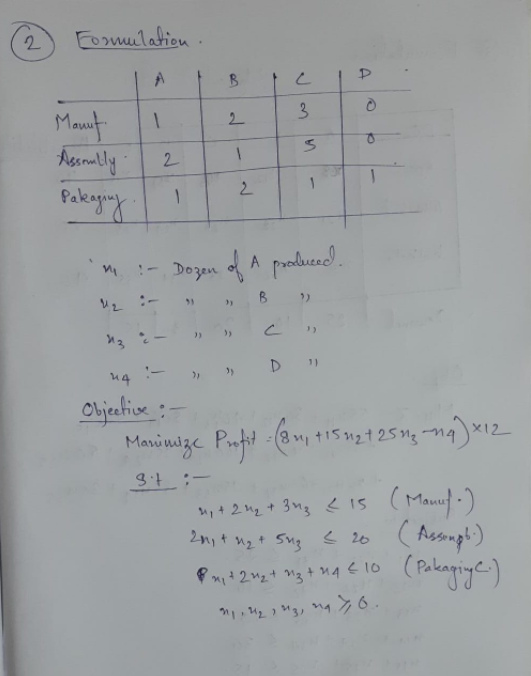 2 Formulation.
A B C D
Manuf. 1 2 3 0
Assembly 2 1 5 0
Pakaging 1 2 1 1
x1 :- Dozen of A produced.
x2 :- " " B "
x3 :- " " C "
x4 :- " " D "
Objective :-
Maximize Profit = (8x1 + 15x2 + 25x3 - x4) × 12
S.t :-
x1 + 2x2 + 3x3 ≤ 15 (Manuf.)
2x1 + x2 + 5x3 ≤ 20 (Assemb.)
x1 + 2x2 + x3 + x4 ≤ 10 (Pakaging.)
x1, x2, x3, x4 ≥ 0.